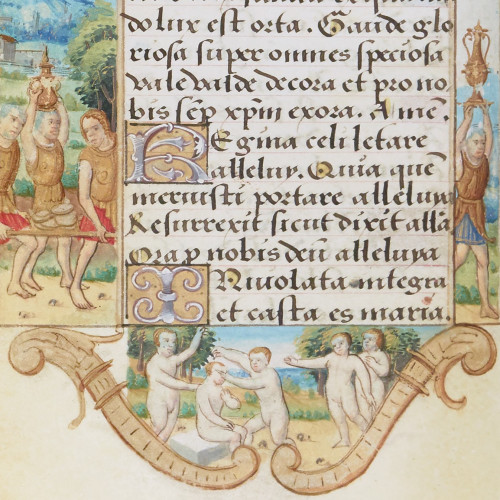 do lux est orta. Gaude glo
riosa super omnes speciosa
vale valde decora et pro no
bis sẽp xpm̃ exora. A mẽ.
REgina celi letare
alleluy. Quia quẽ
meruisti portare alleluya
Resurrexit sicut dixit alla
Ora p nobis deũ alleluya
INviolata integra
et casta es maria.